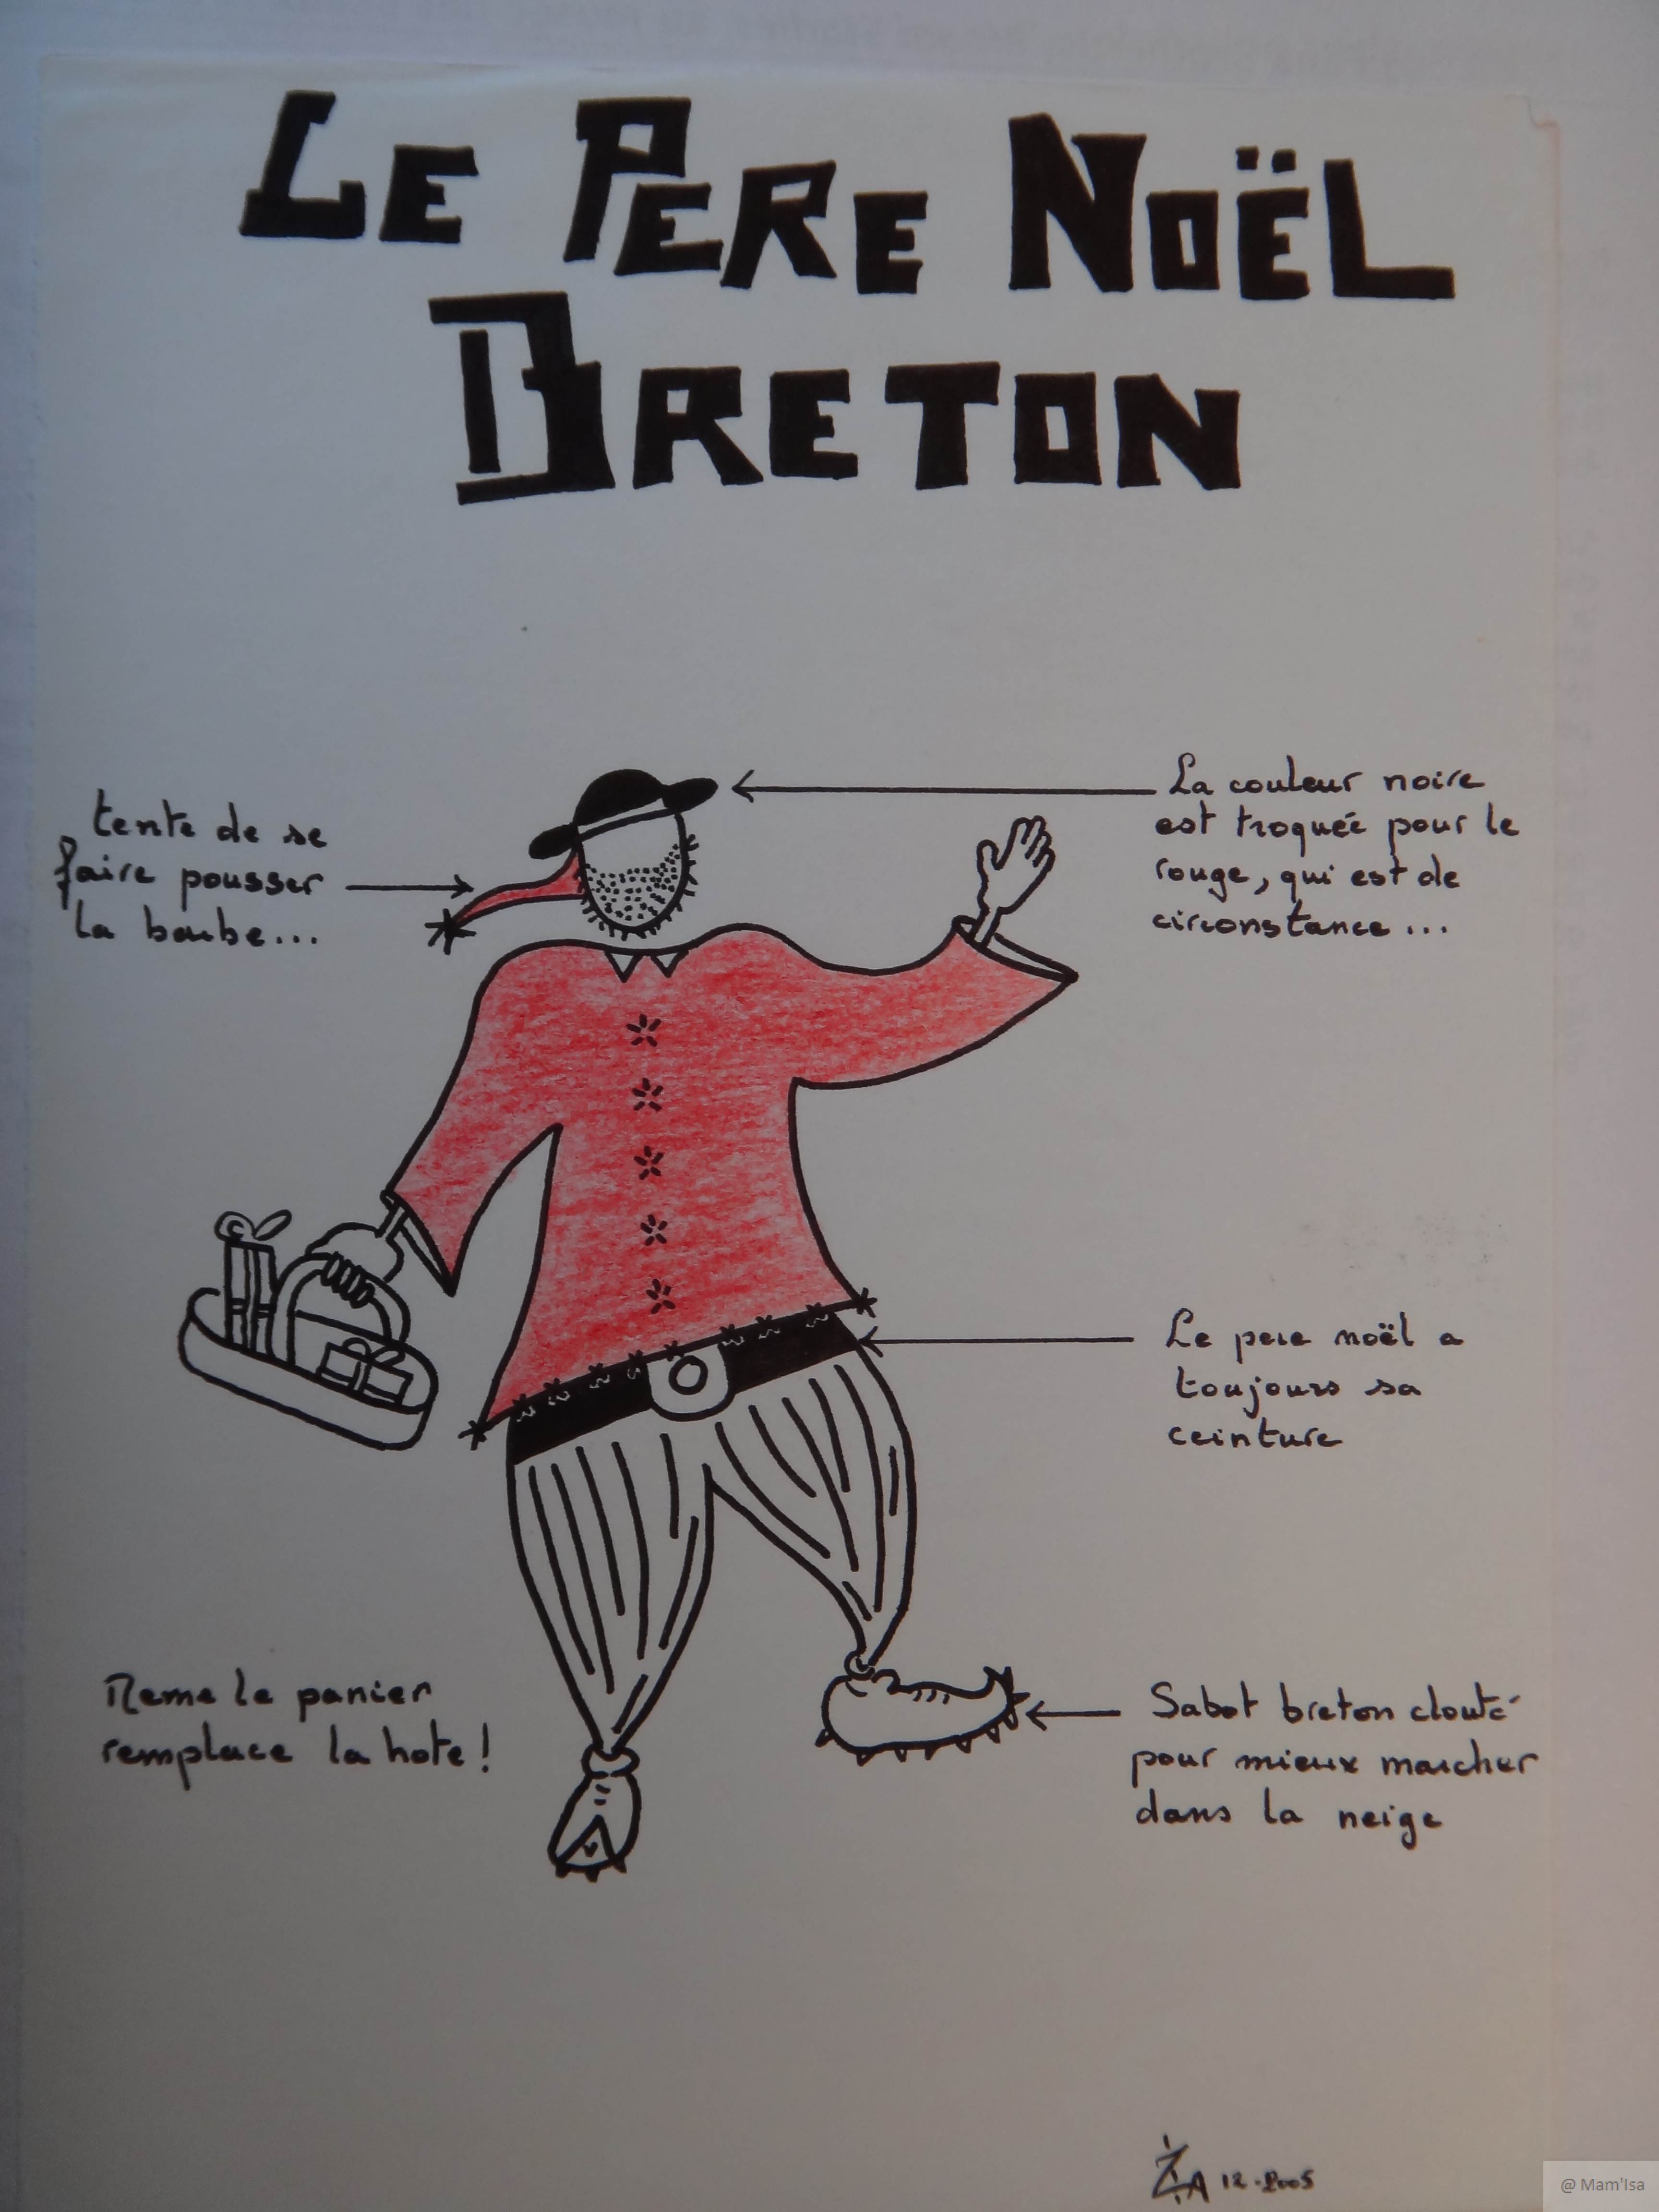 LE PERE NOËL
BRETON
tente de se
faire pousser
la barbe...
La couleur noire
est troquée pour le
rouge, qui est de
circonstance...
Le pere noël a
toujours sa
ceinture
Meme le panier
remplace la hote!
Sabot breton clouté
pour mieux marcher
dans la neige
12-2005
@ Mam'Isa